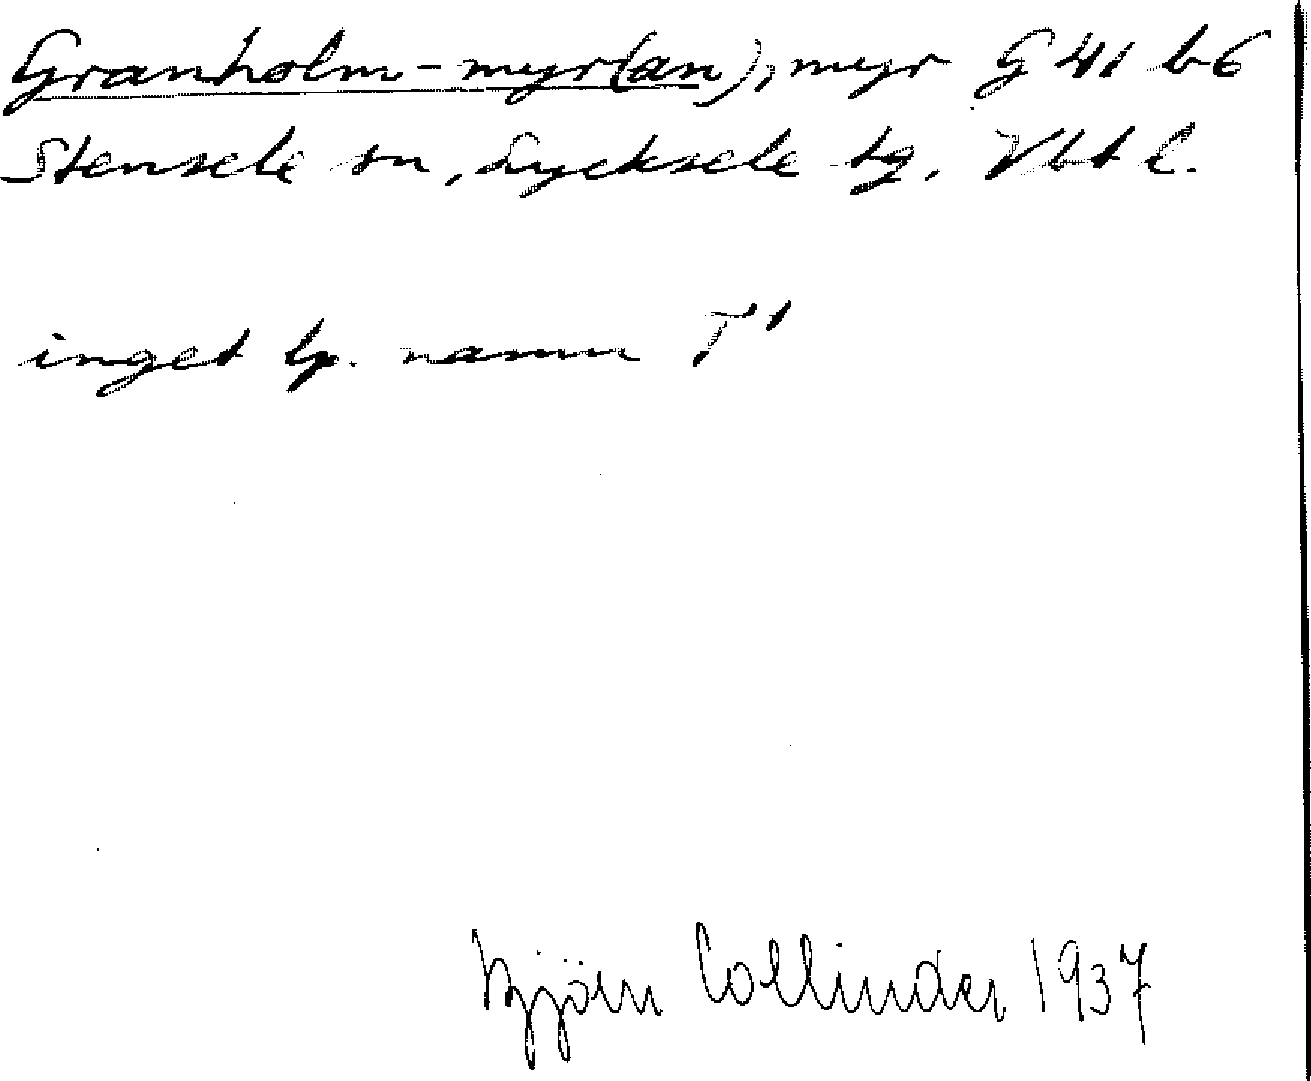 Granholm-myr(an), myr G 41 b6
Stensele sn, Lycksele tg. Vbt l.
inget lp. namn T'
Björn Collinder 1937